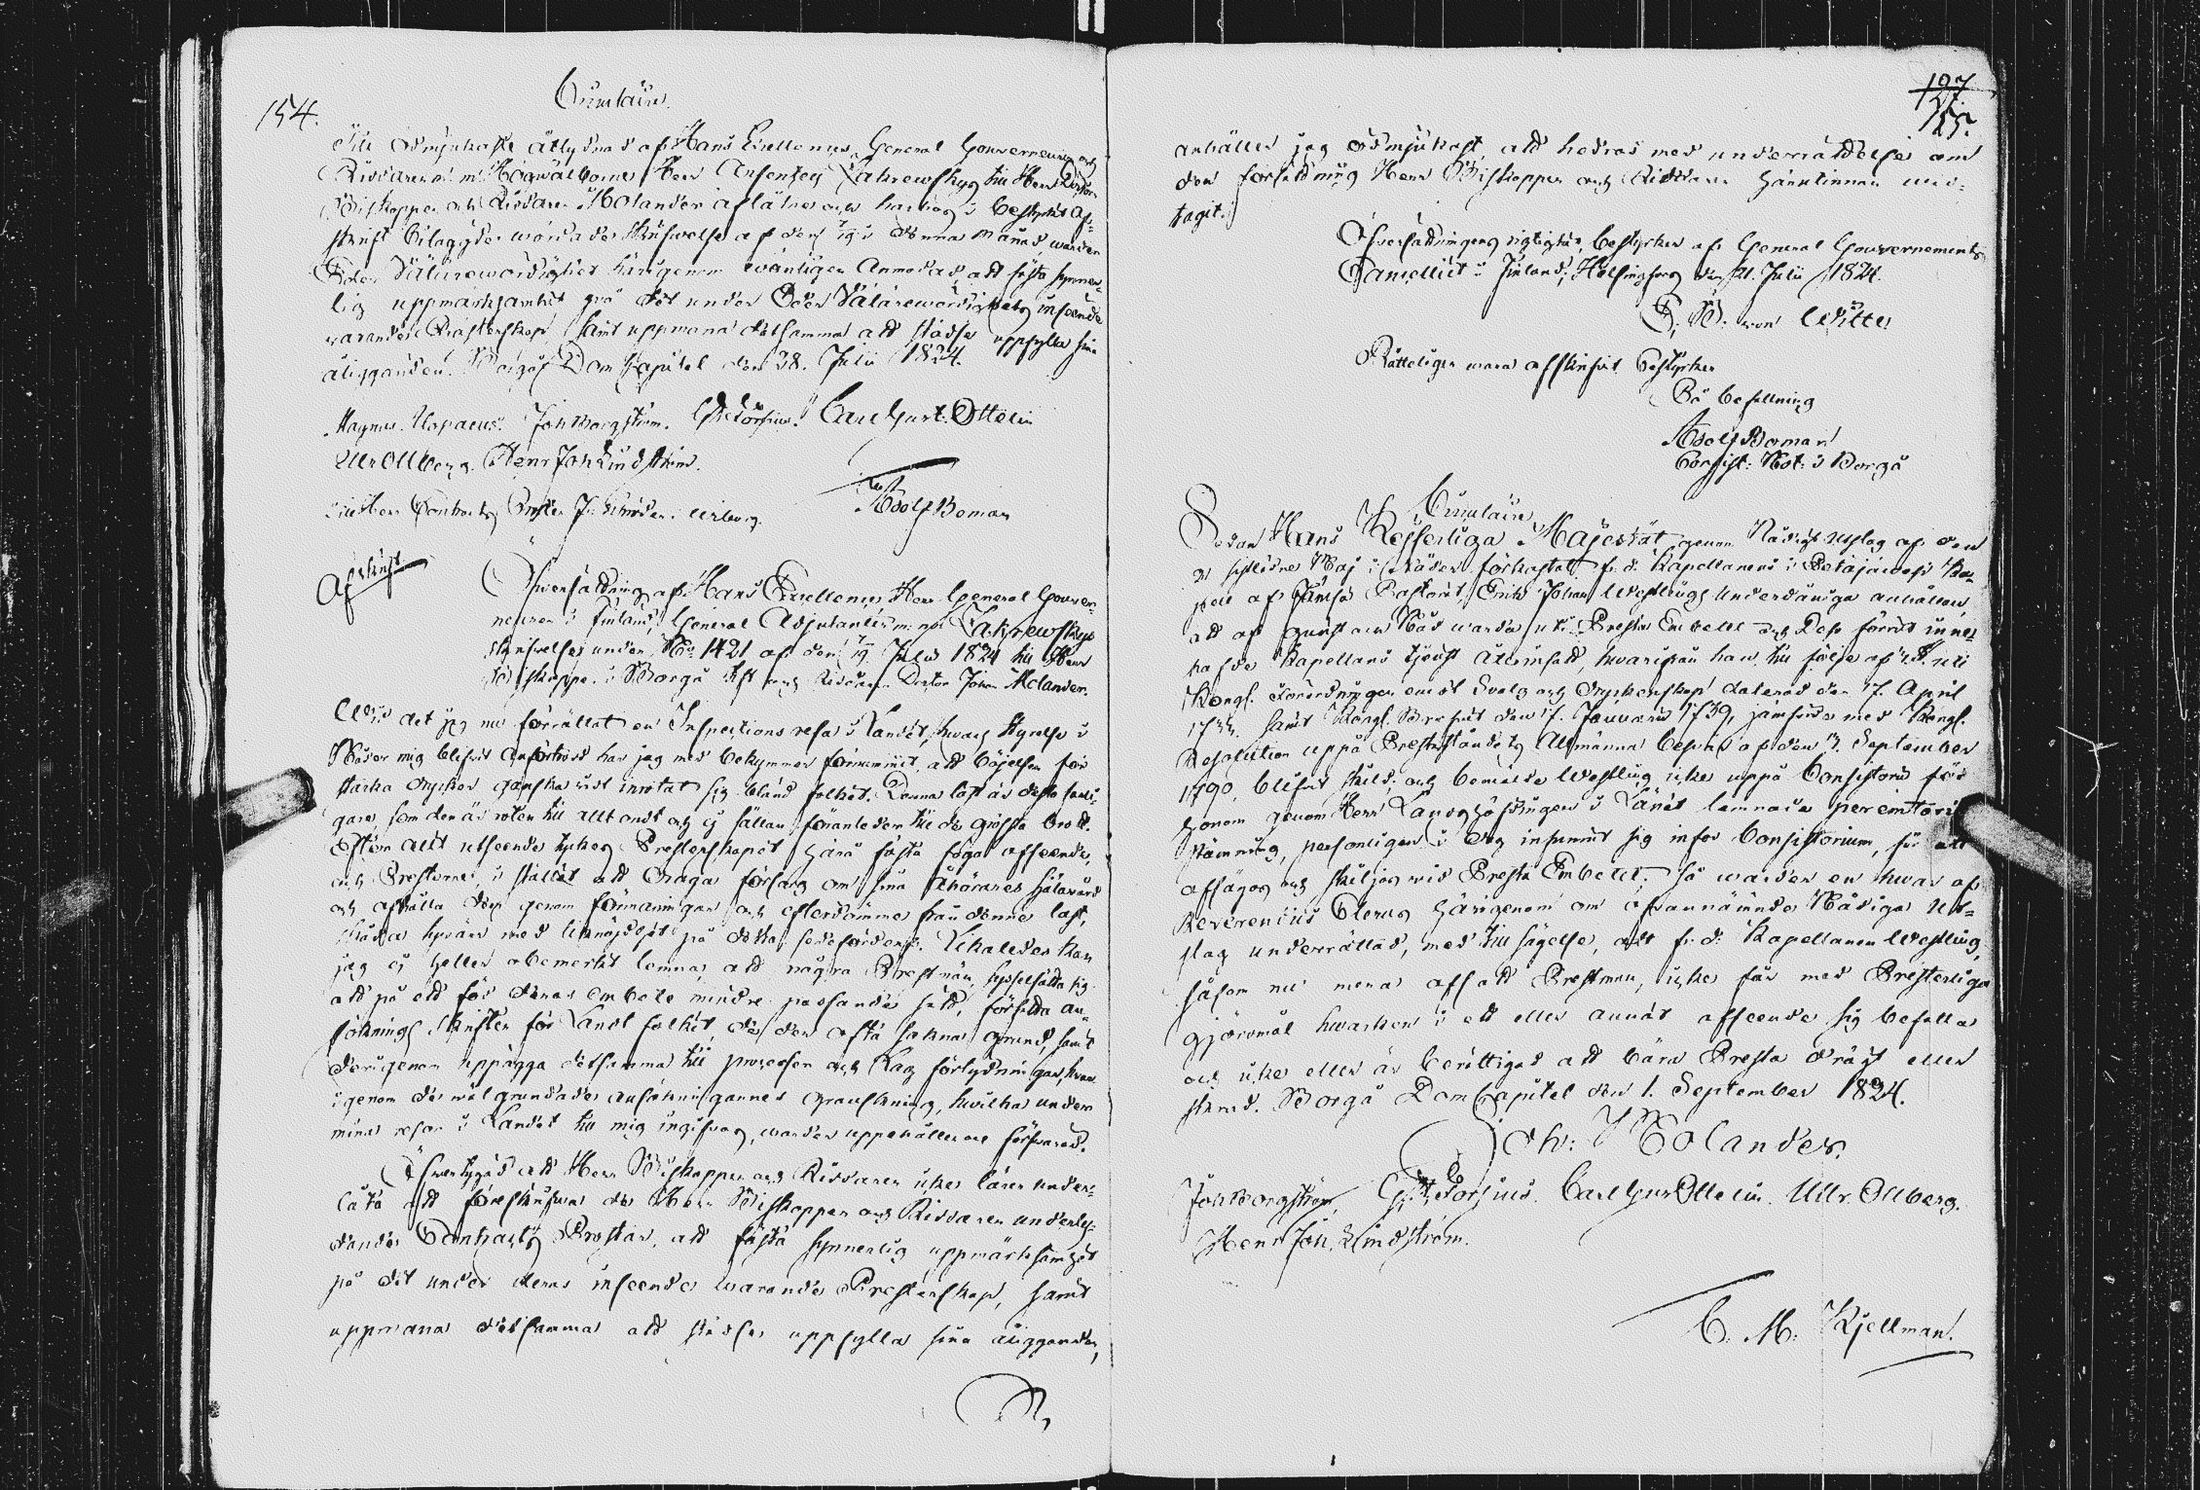 154.
Circulaire.
Till ödmjukaste åtlydnad af Hans Excellences General Gouverneurens och
Riddarens m. m. Högwälborne Herr Arsenjeij Zakrewskys till Herr Doctorn
Biskoppen och Riddaren Molander aflåtne och härhos i bestyrkt af-
skrift bilagde wördade skrifwelse af den 19 i denna månad, warder
Eder Wälärewördighet härigenom wänligen anmodad, att fästa synner-
lig uppmärksamhet på det under Eder Wälärewördighets inseende
warande Prästerskap, samt uppmana detsamma att städse uppfylla sina
åligganden. Borgå Dom Capitel den 28. Julii 1824.
Magnus Alopaeus. Joh Borgström. G. Forsius. Carl Gust. Ottelin
Ulr Ollberg. Henr Joh Lindström.
Till Herr Contracts Prosten Wiborg.
Adolf Boman
Afskrift
Öfwersättning af Hans Excellences Herr General Gouver-
neurens i Finland, General Adjutantens m. m. Zakrewskys
skrifwelse under No 1421 af den 19 Julii 1824 till Herr
Biskoppen i Borgå Stift och Riddaren Doctor Johan Molander.
Wid det jag nu förrättat en Inspections resa i Landet, hwars styrelse i
Nåder mig blifwit anförtrodd har jag med bekymmer förnummit, att böjelsen för
starka drycker ganska widt inrotat sig bland folket. Denna last är desto farli-
gare, som den är roten till allt ondt och ej sällan föranleder till de gröfsta brott.
Efter allt utseende tyckes Presterskapet härå fästa föga afseende,
och Presterne, i stället att draga försorg om sina åhörares själawård
och afhålla dem genom förmaningar och efterdömme från denne last,
skåda tvärs med liknöjdhet på detta sedeförderf. Likaledes kan
jag ej heller obemerkt lemna, att några Prestmän sysselsätta sig
att på ett för deras embete mindre passande sätt, författa an-
söknings skrifter för Landt folket, då den ofta sakna grund, samt
derigenom uppägga detsamma till processer och Lag förtydningar, hwar-
igenom de wäl grundade ansökningarnes granskning, hwilka under
mina resor i Landet till mig ingifwas, warder uppehållen och förswårad.
Öfwertygad att Herr Biskoppen och Riddaren icke lärer under-
låta att föreskrifwa de Herr Biskoppen och Riddaren underly-
dande Contracts Prostar, att fästa synnerlig uppmärksamhet
på det under deras inseende warande Presterskap, samt
uppmana detsamma att städse uppfylla sina åligganden,
127
155.
anhåller jag ödmjukast att hedras med underrättelse om
den författning Herr Biskoppen och Riddaren härutinnan wid-
tagit.
Öfwersättningens rigtighet bestyrkes af General Gouvernements
Cancelliet i Finland, Helsingfors den 21. Julii 1824.
von Witte
Rätteligen wara afskrifwit bestyrker
På befallning
Adolf Boman
Consist: Not: i Borgå
Circulaire
Sedan Hans Kejserliga Majestät genom Nådigt utslag af den
sistledne Maj i Nåder förkastat f. d. Kapellanens i Petäjäwesi Ka-
pell af Jämsä Pastorat, Erik Johan Westlings underdåniga anhållan,
att af gunst och Nåd warda uti Presta Embetet och Dess förut inne-
hafde Kapellans tjenst återinsatt, hwarifrån han till följe af uti
Kongl. Förordningen emot Swalg och Dryckenskap daterad den 17. April
1733. samt Kongl. Brefwet den 17. Januarii 1739, jämförde med Kongl.
Resolution uppå Prestståndets Allmänna beswär af den 7. September
1790, blifwit skild, och bemälde Westling icke uppå Consistorii för
honom genom Herr Landshöfdingen i Länet lemnade peremtoria
stämning, personligen i dag infunnit sig inför Consistorium, för att
afsägas och skiljas wid Presta Embetet; så warder en hwar af
Reverentiis Clerus härigenom om ofwannämnde Nådiga Ut-
slag underrättad, med tillsägelse, att f. d. Kapellanen Westling,
såsom nu mera afsatt Prestman, icke får med Presterliga
gjöromål hwarken i ett eller annat afseende sig befatta
och icke eller är berättigad att bära Presta drägt eller
skrud. Borgå Dom Capitel den 1. September 1824.
Joh: Molander.
Joh Borgström, G. Forsius. Carl Gust Ottelin. Ulr. Ollberg.
Henr Joh. Lindström.
C. M. Kjellman.